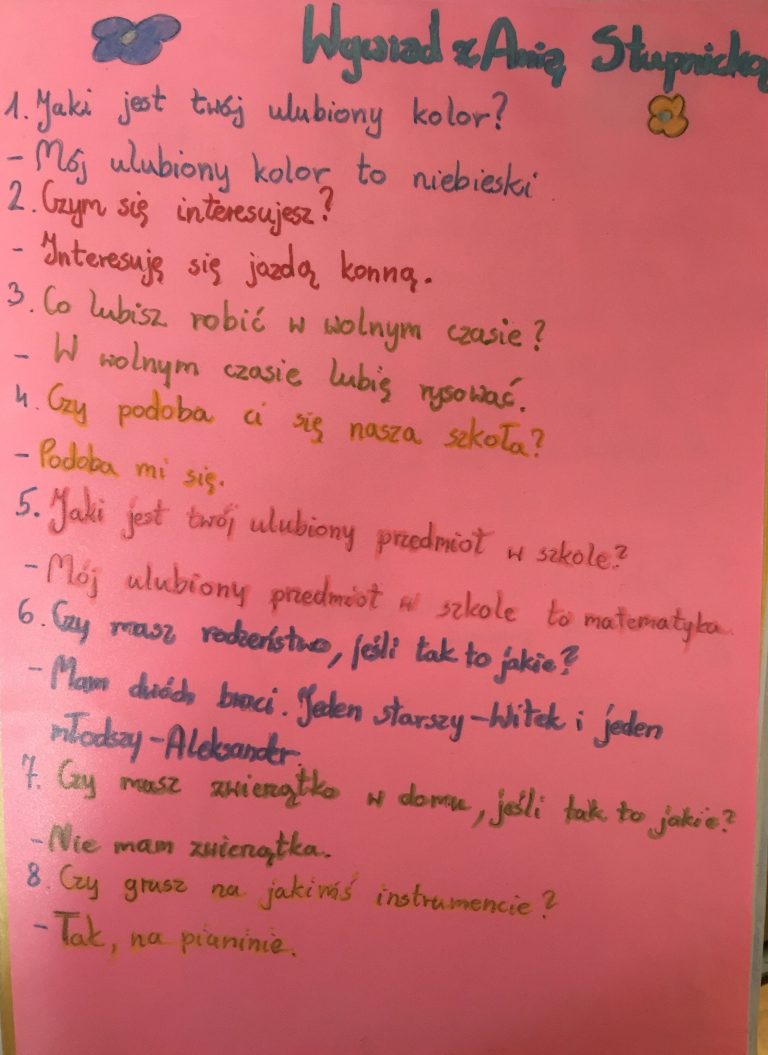 Wywiad z Anią Słupnicką
1. Jaki jest twój ulubiony kolor?
- Mój ulubiony kolor to niebieski
2. Czym się interesujesz?
- Interesuję się jazdą konną.
3. Co lubisz robić w wolnym czasie?
- W wolnym czasie lubię rysować.
4. Czy podoba ci się nasza szkoła?
- Podoba mi się.
5. Jaki jest twój ulubiony przedmiot w szkole?
- Mój ulubiony przedmiot w szkole to matematyka.
6. Czy masz rodzeństwo, jeśli tak to jakie?
- Mam dwóch braci. Jeden starszy - Witek i jeden
młodszy - Aleksander.
7. Czy masz zwierzątko w domu, jeśli tak to jakie?
- Nie mam zwierzątka.
8. Czy grasz na jakimś instrumencie?
- Tak, na pianinie.